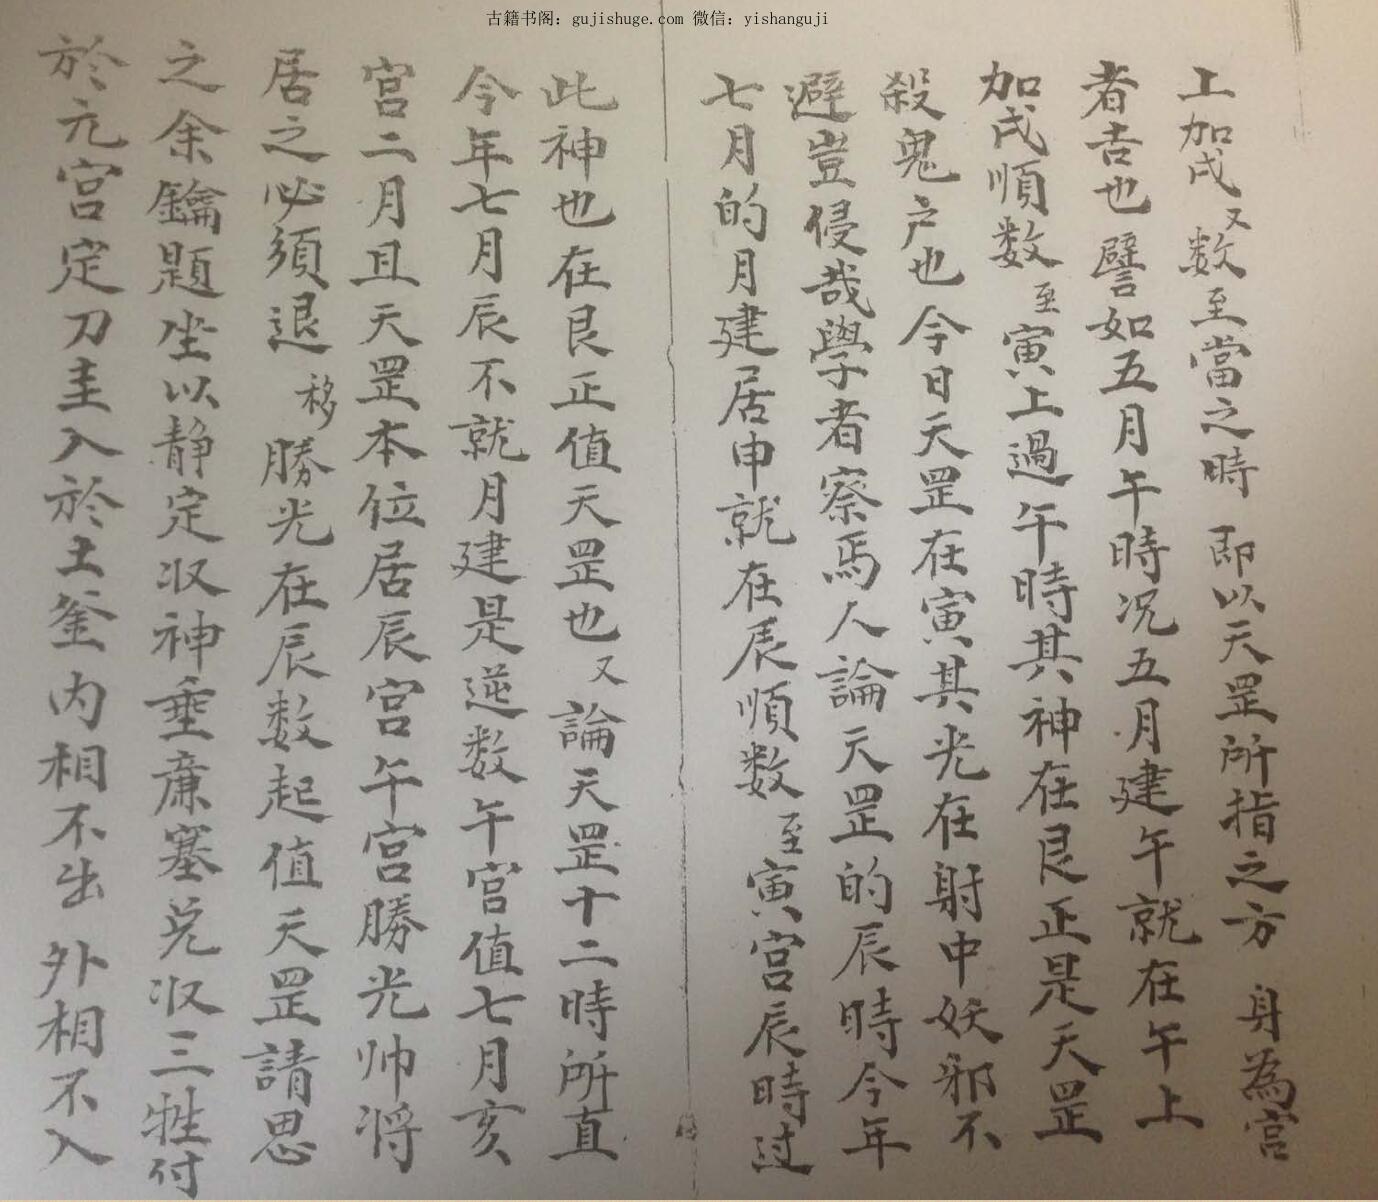 古籍书阁：gujishuge.com 微信：yishanguji
上加戌又数至當之時 即以天罡所指之方 身為宫
者吉也譬如五月午時况五月建午就在午上
加戌順数至寅上過午時其神在艮正是天罡
殺鬼户也今日天罡在寅其光在射中妖邪不
避豈侵哉學者察焉人論天罡的辰時今年
七月的月建居申就在辰順数至寅宫辰時过
此神也在艮正值天罡也又論天罡十二時所直
今年七月辰不就月建是逆数午宫值七月亥
宫二月且天罡本位居辰宫午宫勝光帅将
居之必須退移勝光在辰数起值天罡請思
之余鑰題坐以静定収神垂廉塞兑収三牲付
於元宫定刀圭入於土釜内相不出外相不入